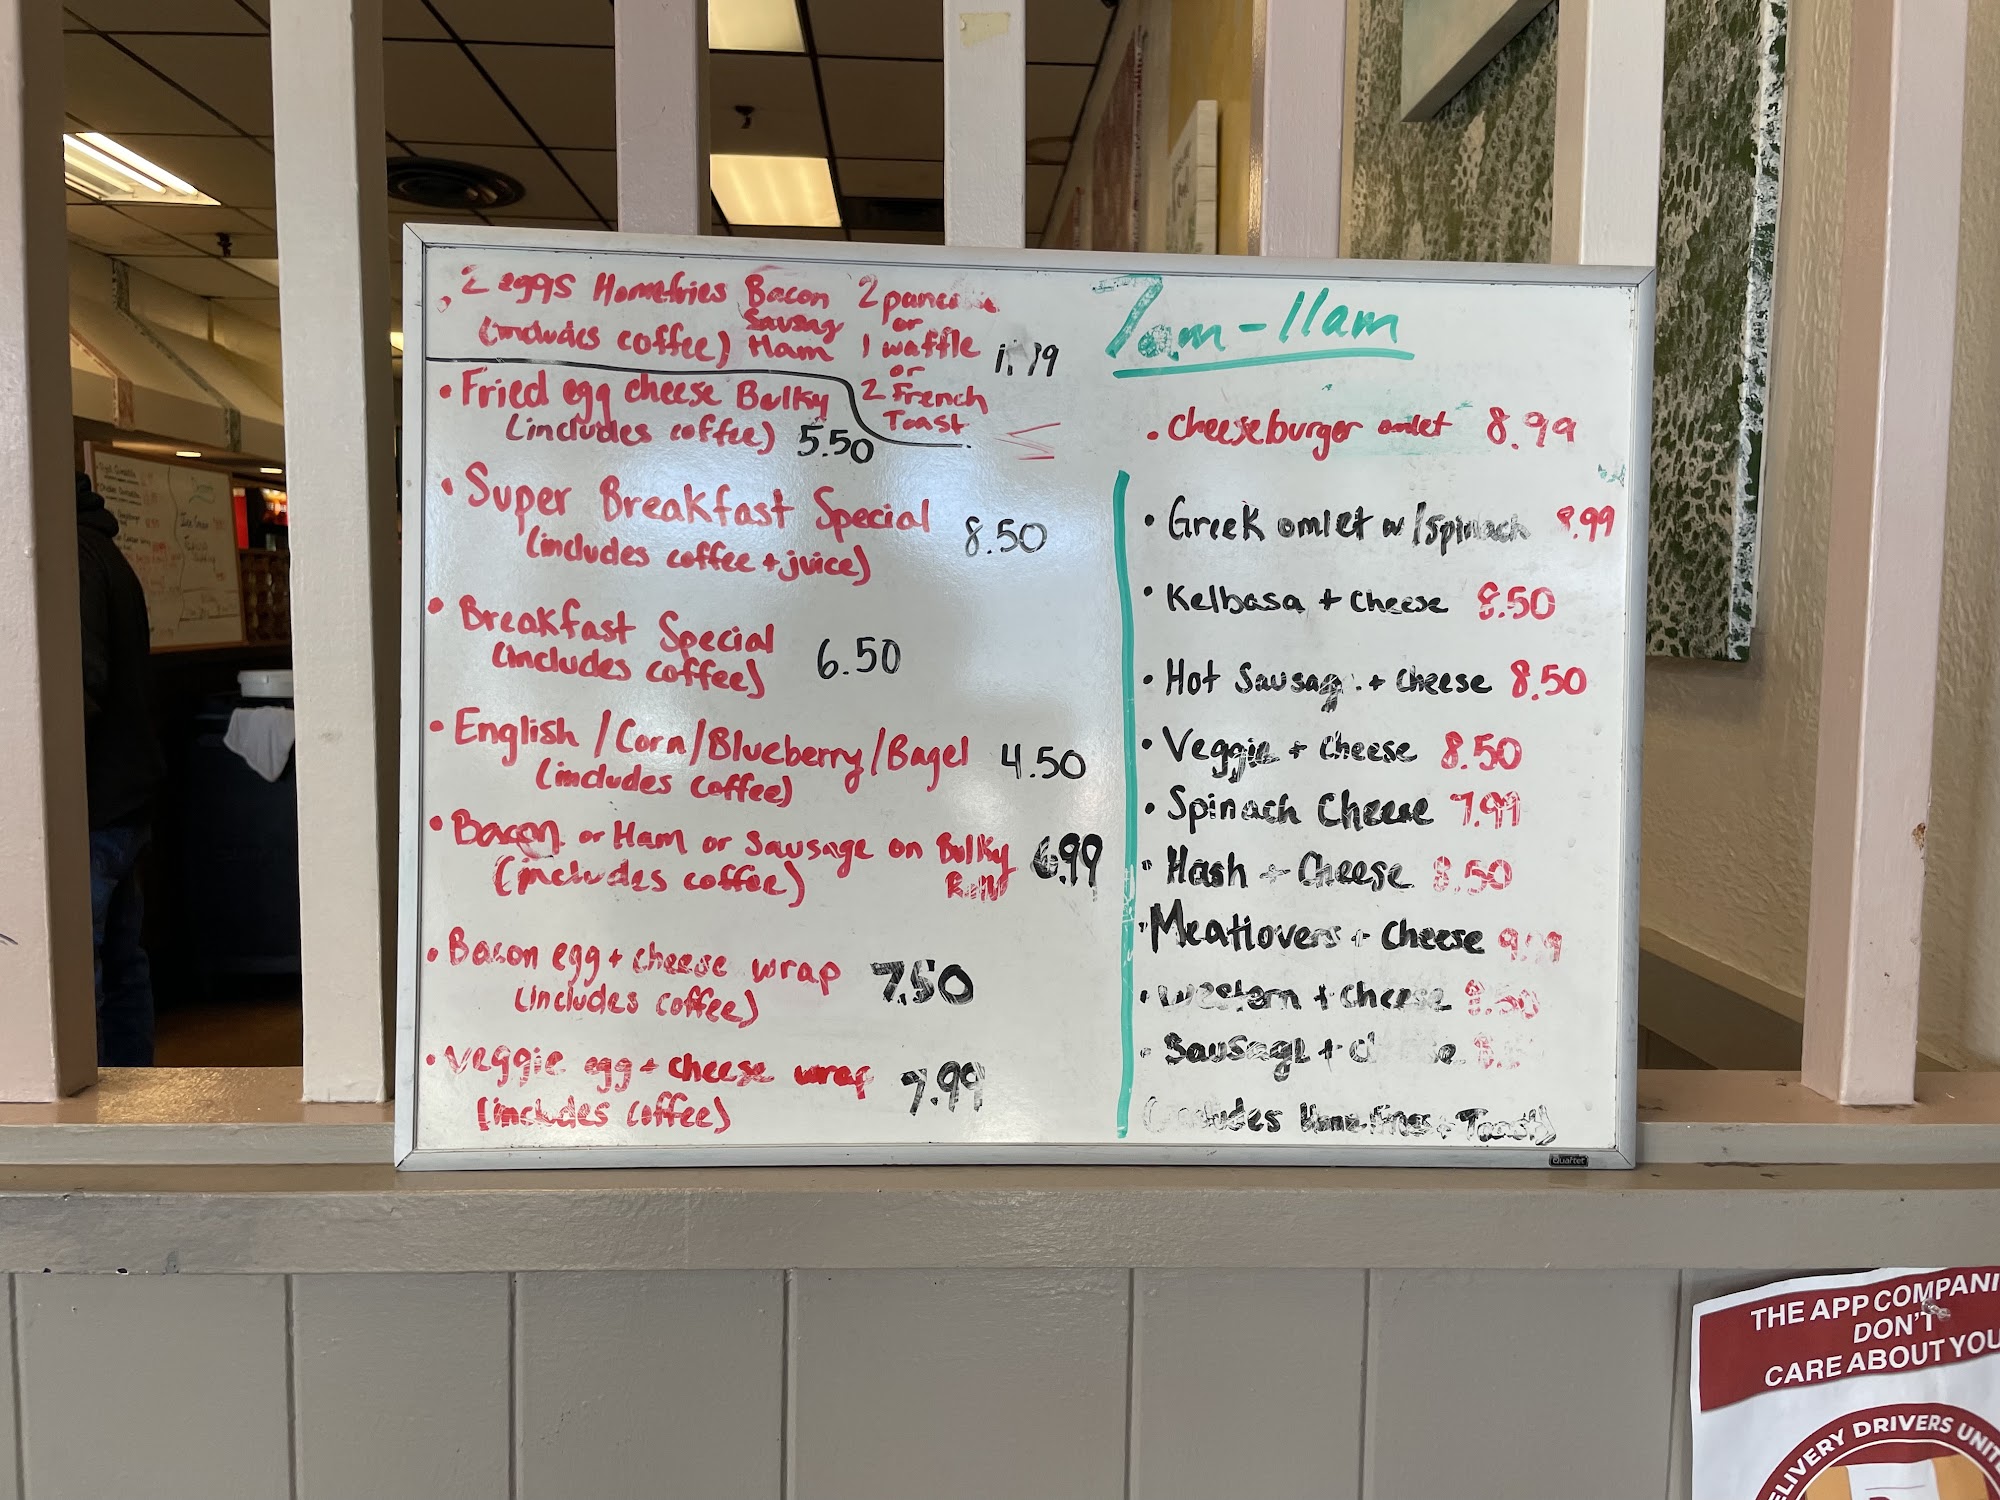 2 eggs Homefries Bacon 2
(includes coffee) Sausag or
Ham 1 waffle
or
2 French
Toast
• Fried egg cheese Bulky
(includes coffee) 5.50
• Super Breakfast Special 8.50
(includes coffee + juice)
• Breakfast Special 6.50
(includes coffee)
• English / Corn / Blueberry / Bagel 4.50
(includes coffee)
• Bacon or Ham or Sausage on Bulky 6.99
(includes coffee)
• Bacon egg + cheese wrap 7.50
(includes coffee)
• Veggie egg + cheese wrap 7.99
(includes coffee)
7am - 11am
• Cheeseburger omlet 8.99
• Greek omlet w/spinach 8.99
• Kelbasa + cheese 8.50
• Hot Sausag + cheese 8.50
• Veggie + cheese 8.50
• Spinach Cheese 7.99
• Hash + Cheese 8.50
• Meatlovers + cheese 9.99
• Western + cheese 8.50
• Sausage +
(includes Home Fries + Toast)
Quartet
THE APP COMPANI
DON'T
CARE ABOUT YOU
DRIVERS